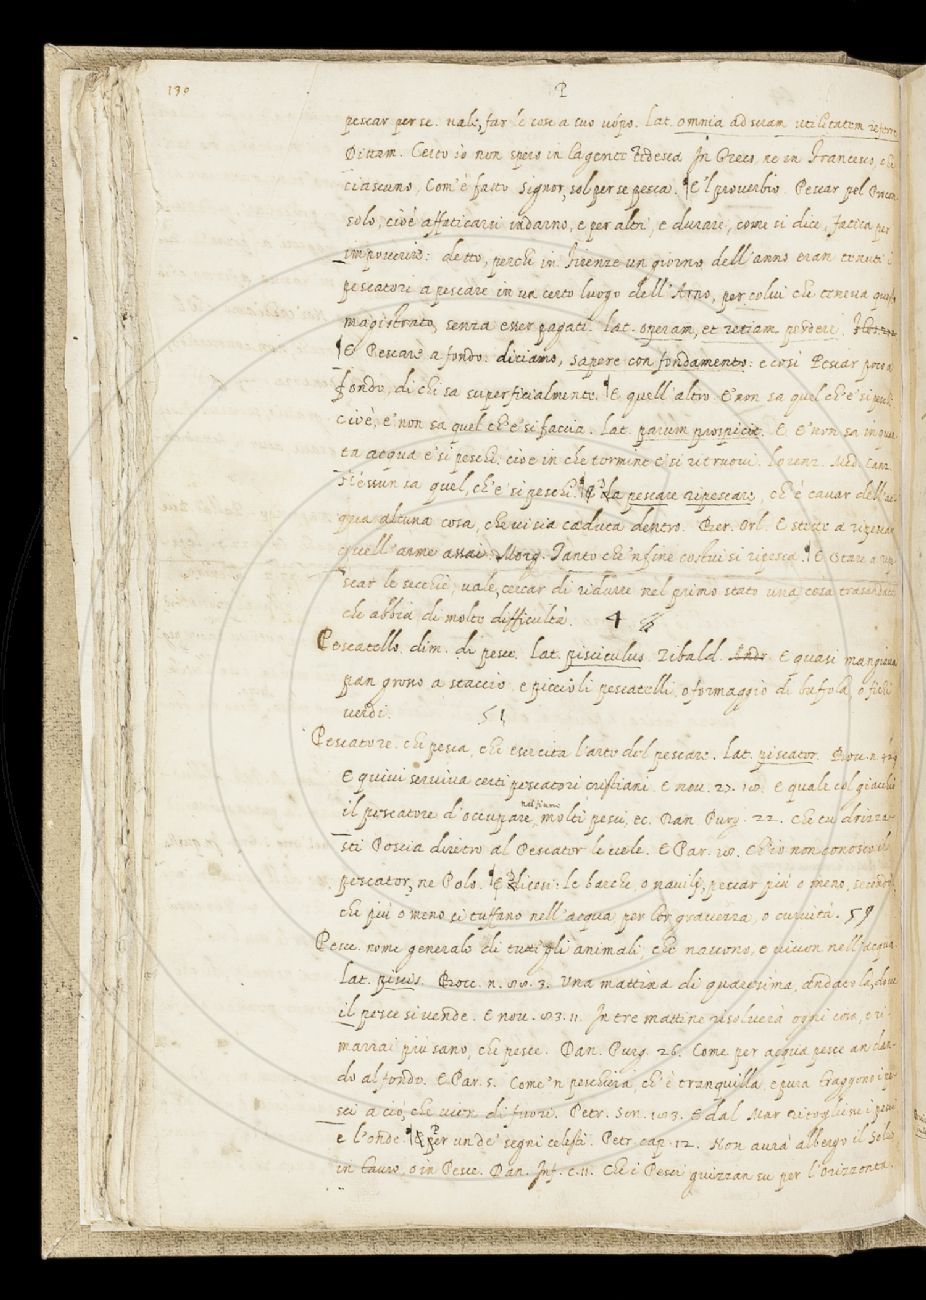 139
P
pescar per se. vale, far le cose a suo uopo. Lat. omnia ad suam utilitatem referre
Dittam. Certo io non spero in la gente Tedesca In Greco, ne in Francesco, che
ciascuno, Com'è fatto signor, sol per se pesca. E'l proverbio. Pescar pel
solo, cioè affaticarsi indarno, e per altri, e durare, come si dice, fatica per
impoverire: detto, perchè in Firenze un giorno dell'anno eran tenuti i
pescatori a pescare in un certo luogo dell'Arno, per colui che teneva quel
magistrato, senza esser pagati. Lat. operam, et retiam perdere.
E Pescare a fondo: diciamo, sapere con fondamento: e così Pescar poco a
fondo, di chi sa superficialmente. E quell'altro. E' non sa quel ch'e' si peschi
cioè, e' non sa quel ch'e' si faccia. Lat. parum prospicit. E E' non sa in qua
ta acqua e' si peschi: cioè in che termine e' si ritruovi. Lorenz. Med. Canz.
Nessun sa quel, ch'e' si peschi. E da pescare ripescare, ch'è cavar dell'ac
qua alcuna cosa, che vi sia caduta dentro. Ber. Orl. E stette a ripescar
quell'arme assai. Morg. Tanto che 'nfine costui si ripesca. E Stare a ripe
scar le secchie, vale, cercar di ridurre nel primo stato una cosa trasandata
che abbia di molto difficultà. 4
Pescatello. dim. di pesce. Lat. pisciculus. Ribald. Andr. E quasi mangiava
pan grosso a staccio, e piccioli pescatelli, o formaggio di bufola, o fichi
verdi. 51
Pescatore. che pesca, che esercita l'arte del pescare. Lat. piscator. Bocc. n.
E quivi serviva certi pescatori cristiani. E nov. 27. E quale col giacchio
nel fiume
il pescatore d'occupare, molti pesci, ec. Dan. Purg. 22. Che tu drizza-
sti Poscia diretro al Pescator le vele. E Par. 18. Ch'io non conosco il
pescator, ne Polo. E dicesi: le barche, o navili, pescar più o meno, secondo,
che più o meno si tuffano nell'acqua per lor gravezza, o curvità. 59
Pesce. nome generale di tutti gli animali, che nascono, e vivon nell'acqua.
Lat. piscis. Bocc. n. 3. Una mattina di quaresima, andato la, dove
il pesce si vende. E nov. 83. 11. In tre mattine risolverà ogni cosa, e ri-
marrai più sano, che pesce. Dan. Purg. 26. Come per acqua pesce andan-
do al fondo. E Par. 5. Come 'n peschiera, ch'è tranquilla, e pura Traggono i pe-
sci a ciò, che vien di fuori. Petr. Son. E dal Mar ritogliene i pesci
e l'onde. E per un de' segni celesti. Petr. cap. 12. Non avrà albergo il Sole
in Tauro, o in Pesce. Dan. Inf. c. 11. Che i Pesci guizzan su per l'Orizzonta.